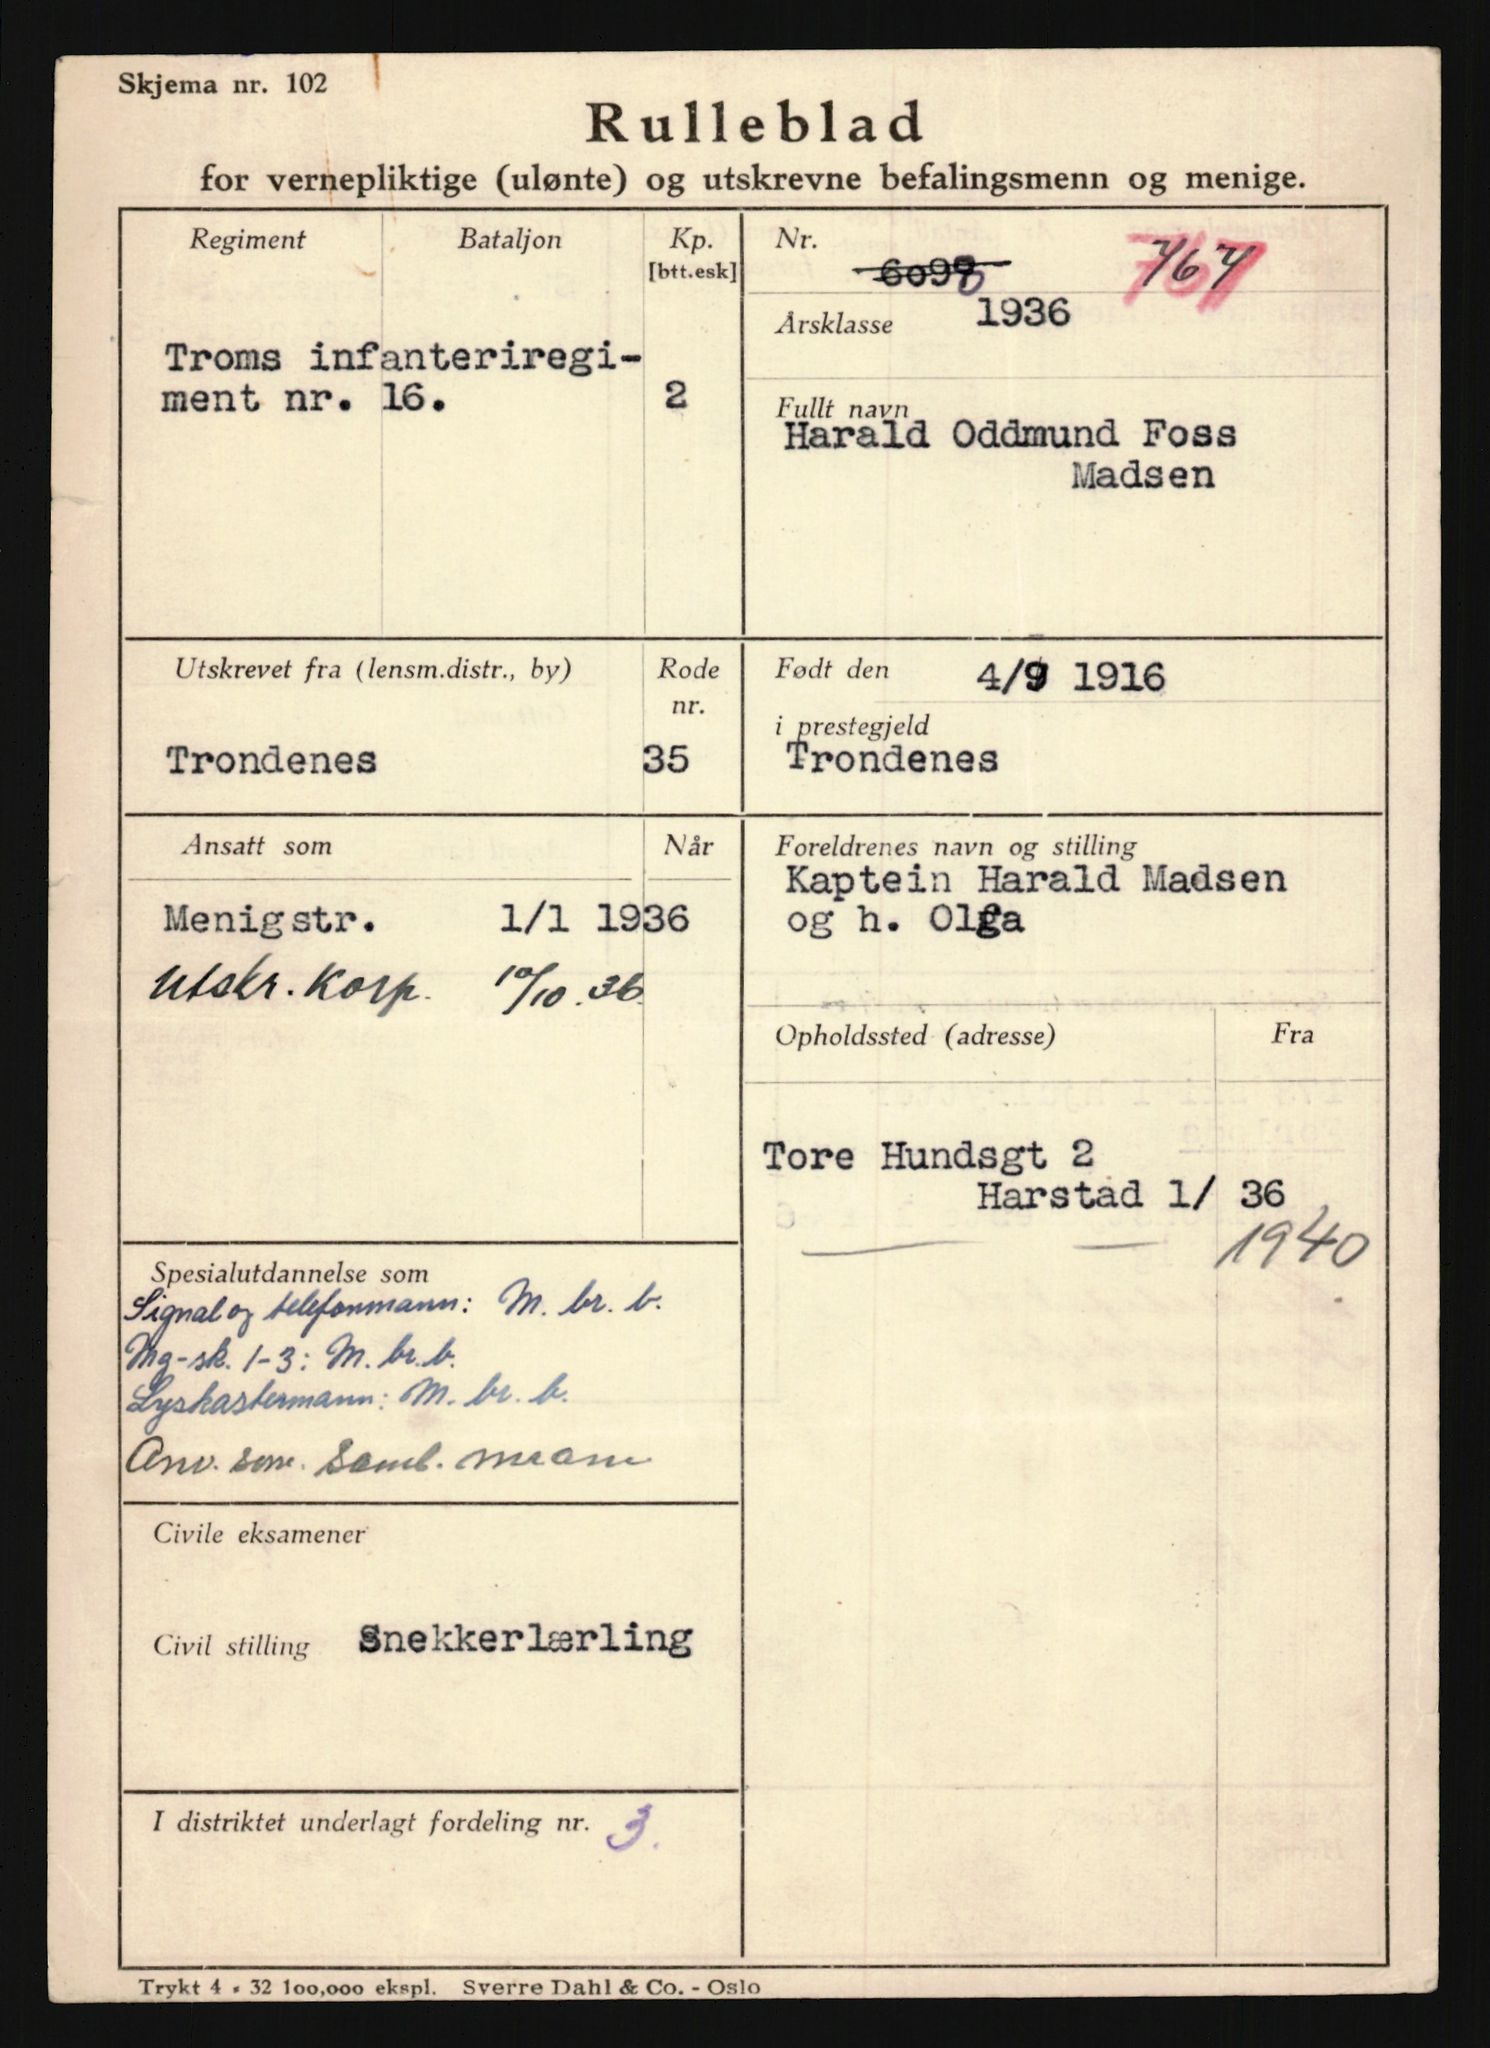 Skjema nr. 102
Rulleblad
for vernepliktige (ulønte) og utskrevne befalingsmenn og menige.
Regiment Bataljon Kp.
[btt.esk]
Troms infanteriregi-
ment nr. 16. 2
Nr. 767
Årsklasse 1936
Fullt navn
Harald Oddmund Foss
Madsen
Utskrevet fra (lensm.distr., by) Rode
nr.
Trondenes 35
Født den 4/9 1916
i prestegjeld
Trondenes
Ansatt som Når
Menigstr. 1/1 1936
Utskr. Korp. 10/10. 36
Foreldrenes navn og stilling
Kaptein Harald Madsen
og h. Olga
Opholdssted (adresse) Fra
Tore Hundsgt 2
Harstad 1/ 36
1940
Spesialutdannelse som
Signal og telefonmann: M. br. b.
Mg-sk. 1-3: M. br. b.
Lyskastermann: M. br. b.
Anv. som. Samb. mann
Civile eksamener
Civil stilling Snekkerlærling
I distriktet underlagt fordeling nr. 3.
Trykt 4 - 32 100,000 ekspl. Sverre Dahl & Co. - Oslo